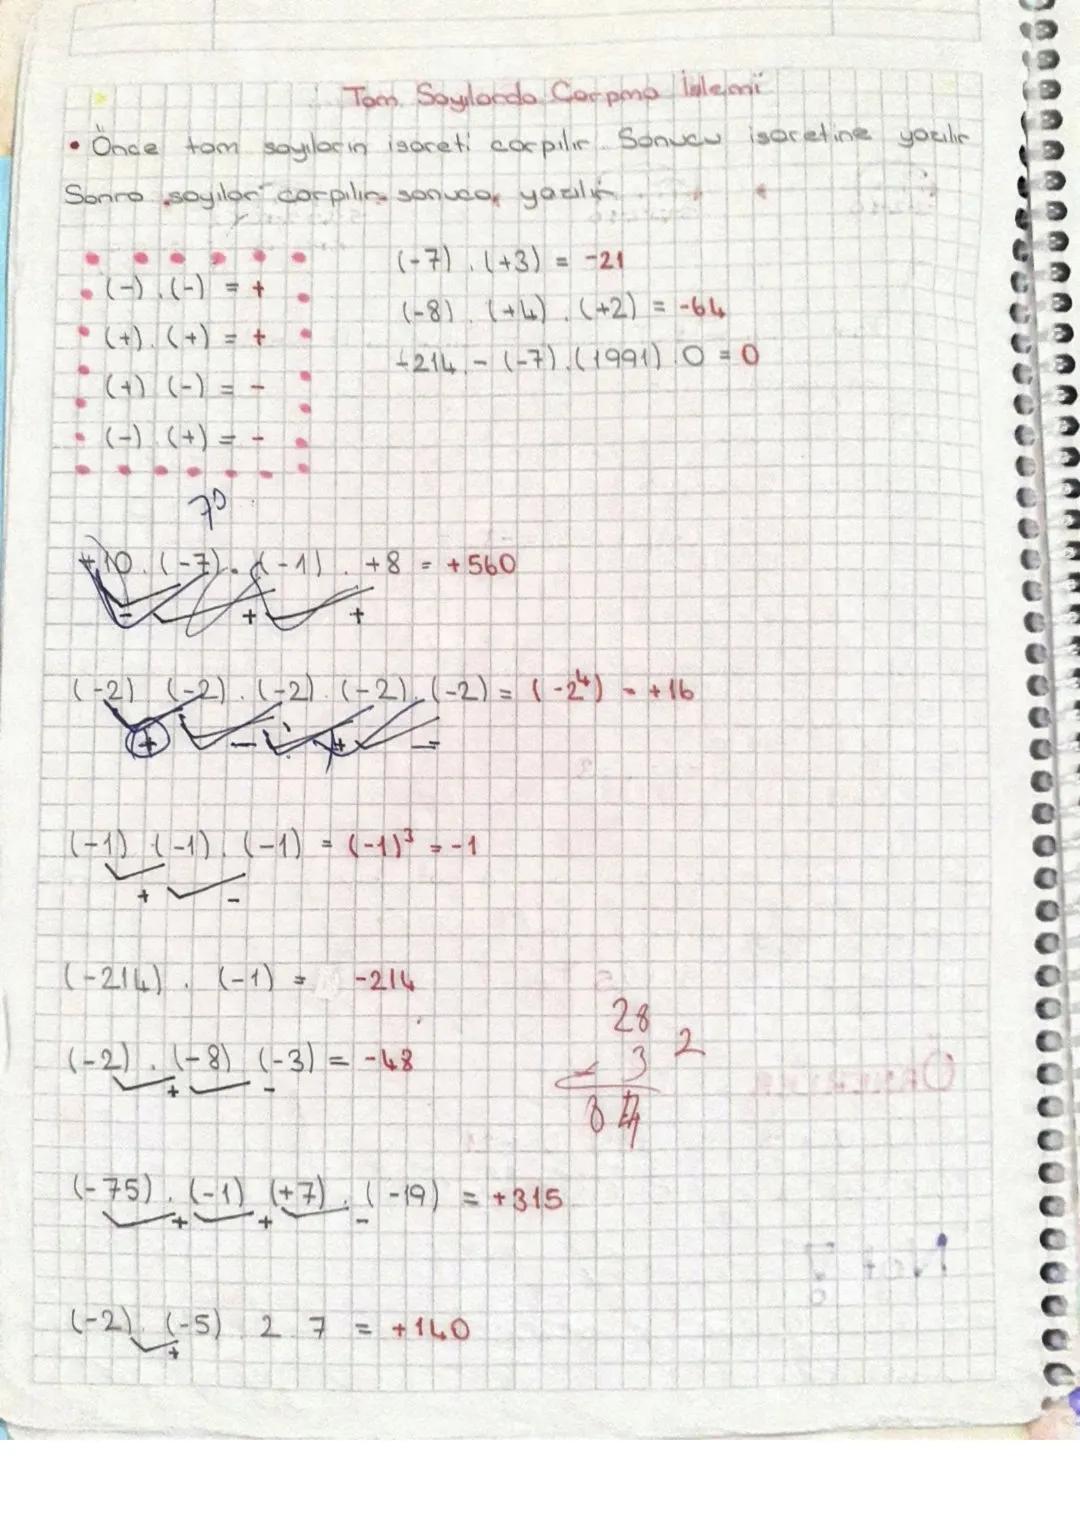 Tam Sayılarda Çarpma İşlemi
• Önce tam sayıların işareti çarpılır. Sonucu işaretine yazılır
Sonra sayılar çarpılır sonuca yazılır
(-).(-) = +
(+).(+) = +
(+) (-) = -
(-).(+) = -
(-7).(+3) = -21
(-8).(+4).(+2) = -64
-214.-(-7).(1991).0 = 0
70
+10.(-7).(-1).+8 = +560
- + +
(-2) (-2).(-2).(-2).(-2) = (-2⁴) = +16
+ - + -
(-1) (-1).(-1) = (-1)³ = -1
+ -
(-214).(-1) = -214
(-2).(-8) (-3) = -48
+ -
28
3 2
84
(-75).(-1) (+7).(-19) = +315
+ + -
(-2).(-5) 2 7 = +140
+